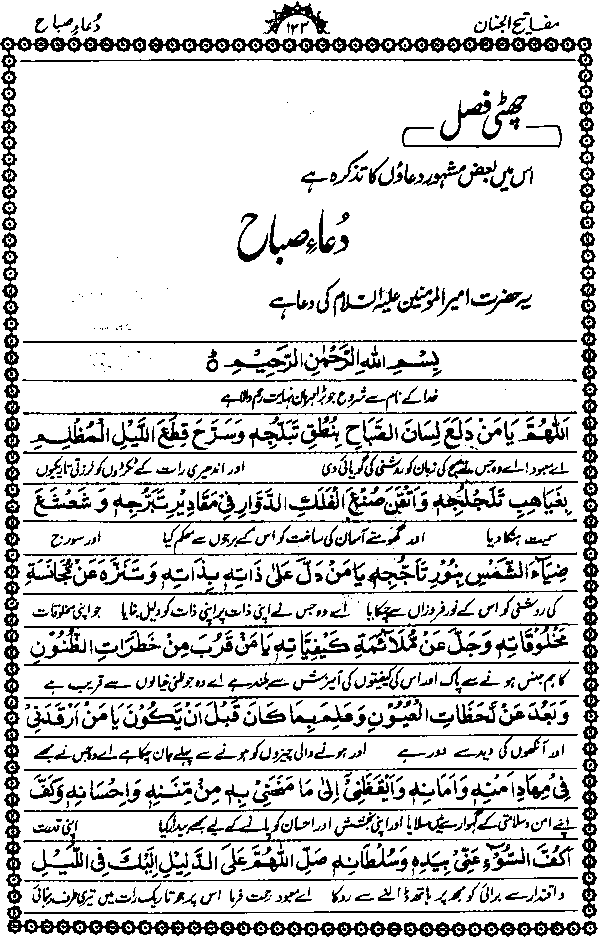 مفاتیح الجنان ۱۲۲ دُعاءِ صباح
چھٹی فصل
اس میں بعض مشہور دعاؤں کا تذکرہ ہے
دُعاءِ صباح
یہ حضرت امیر المؤمنین علیہ السلام کی دعا ہے
بِسْمِ اللهِ الرَّحْمٰنِ الرَّحِيْمِ
خدا کے نام سے شروع جو بڑا مہربان نہایت رحم والا ہے
اَللّٰهُمَّ يَا مَنْ دَلَعَ لِسَانَ الصَّبَاحِ بِنُطْقِ تَبَلُّجِهٖ وَسَرَّحَ قِطَعَ اللَّيْلِ الْمُظْلِمِ
اے معبود! اے وہ جس نے صبح کی زبان کو روشنی کی گویائی دی اور اندھیری رات کے ٹکڑوں کو لرزتی تاریکیوں
بِغَيَاهِبِ تَلَجْلُجِهٖ وَاَتْقَنَ صُنْعَ الْفَلَكِ الدَّوَّارِ فِيْ مَقَادِيْرِ تَبَرُّجِهٖ وَشَعْشَعَ
سمیت ہنکا دیا اور گھومتے آسمان کی ساخت کو اس کے برجوں سے محکم کیا اور سورج
ضِيَاءَ الشَّمْسِ بِنُوْرِ تَاَجُّجِهٖ يَا مَنْ دَلَّ عَلٰى ذَاتِهٖ بِذَاتِهٖ وَتَنَزَّهَ عَنْ مُجَانَسَةِ
کی روشنی کو اس کے نور فروزاں سے چمکایا اے وہ جس نے اپنی ذات پر اپنی ذات کو دلیل بنایا جو اپنی مخلوقات
مَخْلُوْقَاتِهٖ وَجَلَّ عَنْ مُلَائَمَةِ كَيْفِيَّاتِهٖ يَا مَنْ قَرُبَ مِنْ خَطَرَاتِ الظُّنُوْنِ
کا ہم جنس ہونے سے پاک اور اس کی کیفیتوں کی آمیزش سے بلند ہے اے وہ جو ظنی خیالوں سے قریب ہے
وَبَعُدَ عَنْ لَحَظَاتِ الْعُيُوْنِ وَعَلِمَ بِمَا كَانَ قَبْلَ اَنْ يَّكُوْنَ يَا مَنْ اَرْقَدَنِيْ
اور آنکھوں کی دید سے دور ہے اور ہونے والی چیزوں کو ہونے سے پہلے جان چکا ہے اے وہ جس نے مجھے
فِيْ مِهَادِ اَمْنِهٖ وَاَمَانِهٖ وَاَيْقَظَنِيْ اِلٰى مَا مَنَحَنِيْ بِهٖ مِنْ مِنَنِهٖ وَاِحْسَانِهٖ وَكَفَّ
اپنے امن و سلامتی کے گہوارے میں سلایا اور اپنی بخشش اور احسان کو پانے کے لیے مجھے بیدار کیا اپنی قدرت
اَكُفَّ السُّوْٓءِ عَنِّيْ بِيَدِهٖ وَسُلْطَانِهٖ صَلِّ اللّٰهُمَّ عَلَى الدَّلِيْلِ اِلَيْكَ فِي اللَّيْلِ
و اقتدار سے برائی کو مجھ پر ہاتھ ڈالنے سے روکا اے معبود رحمت فرما اس پر جو تاریک رات میں تیری طرف رہنمائی